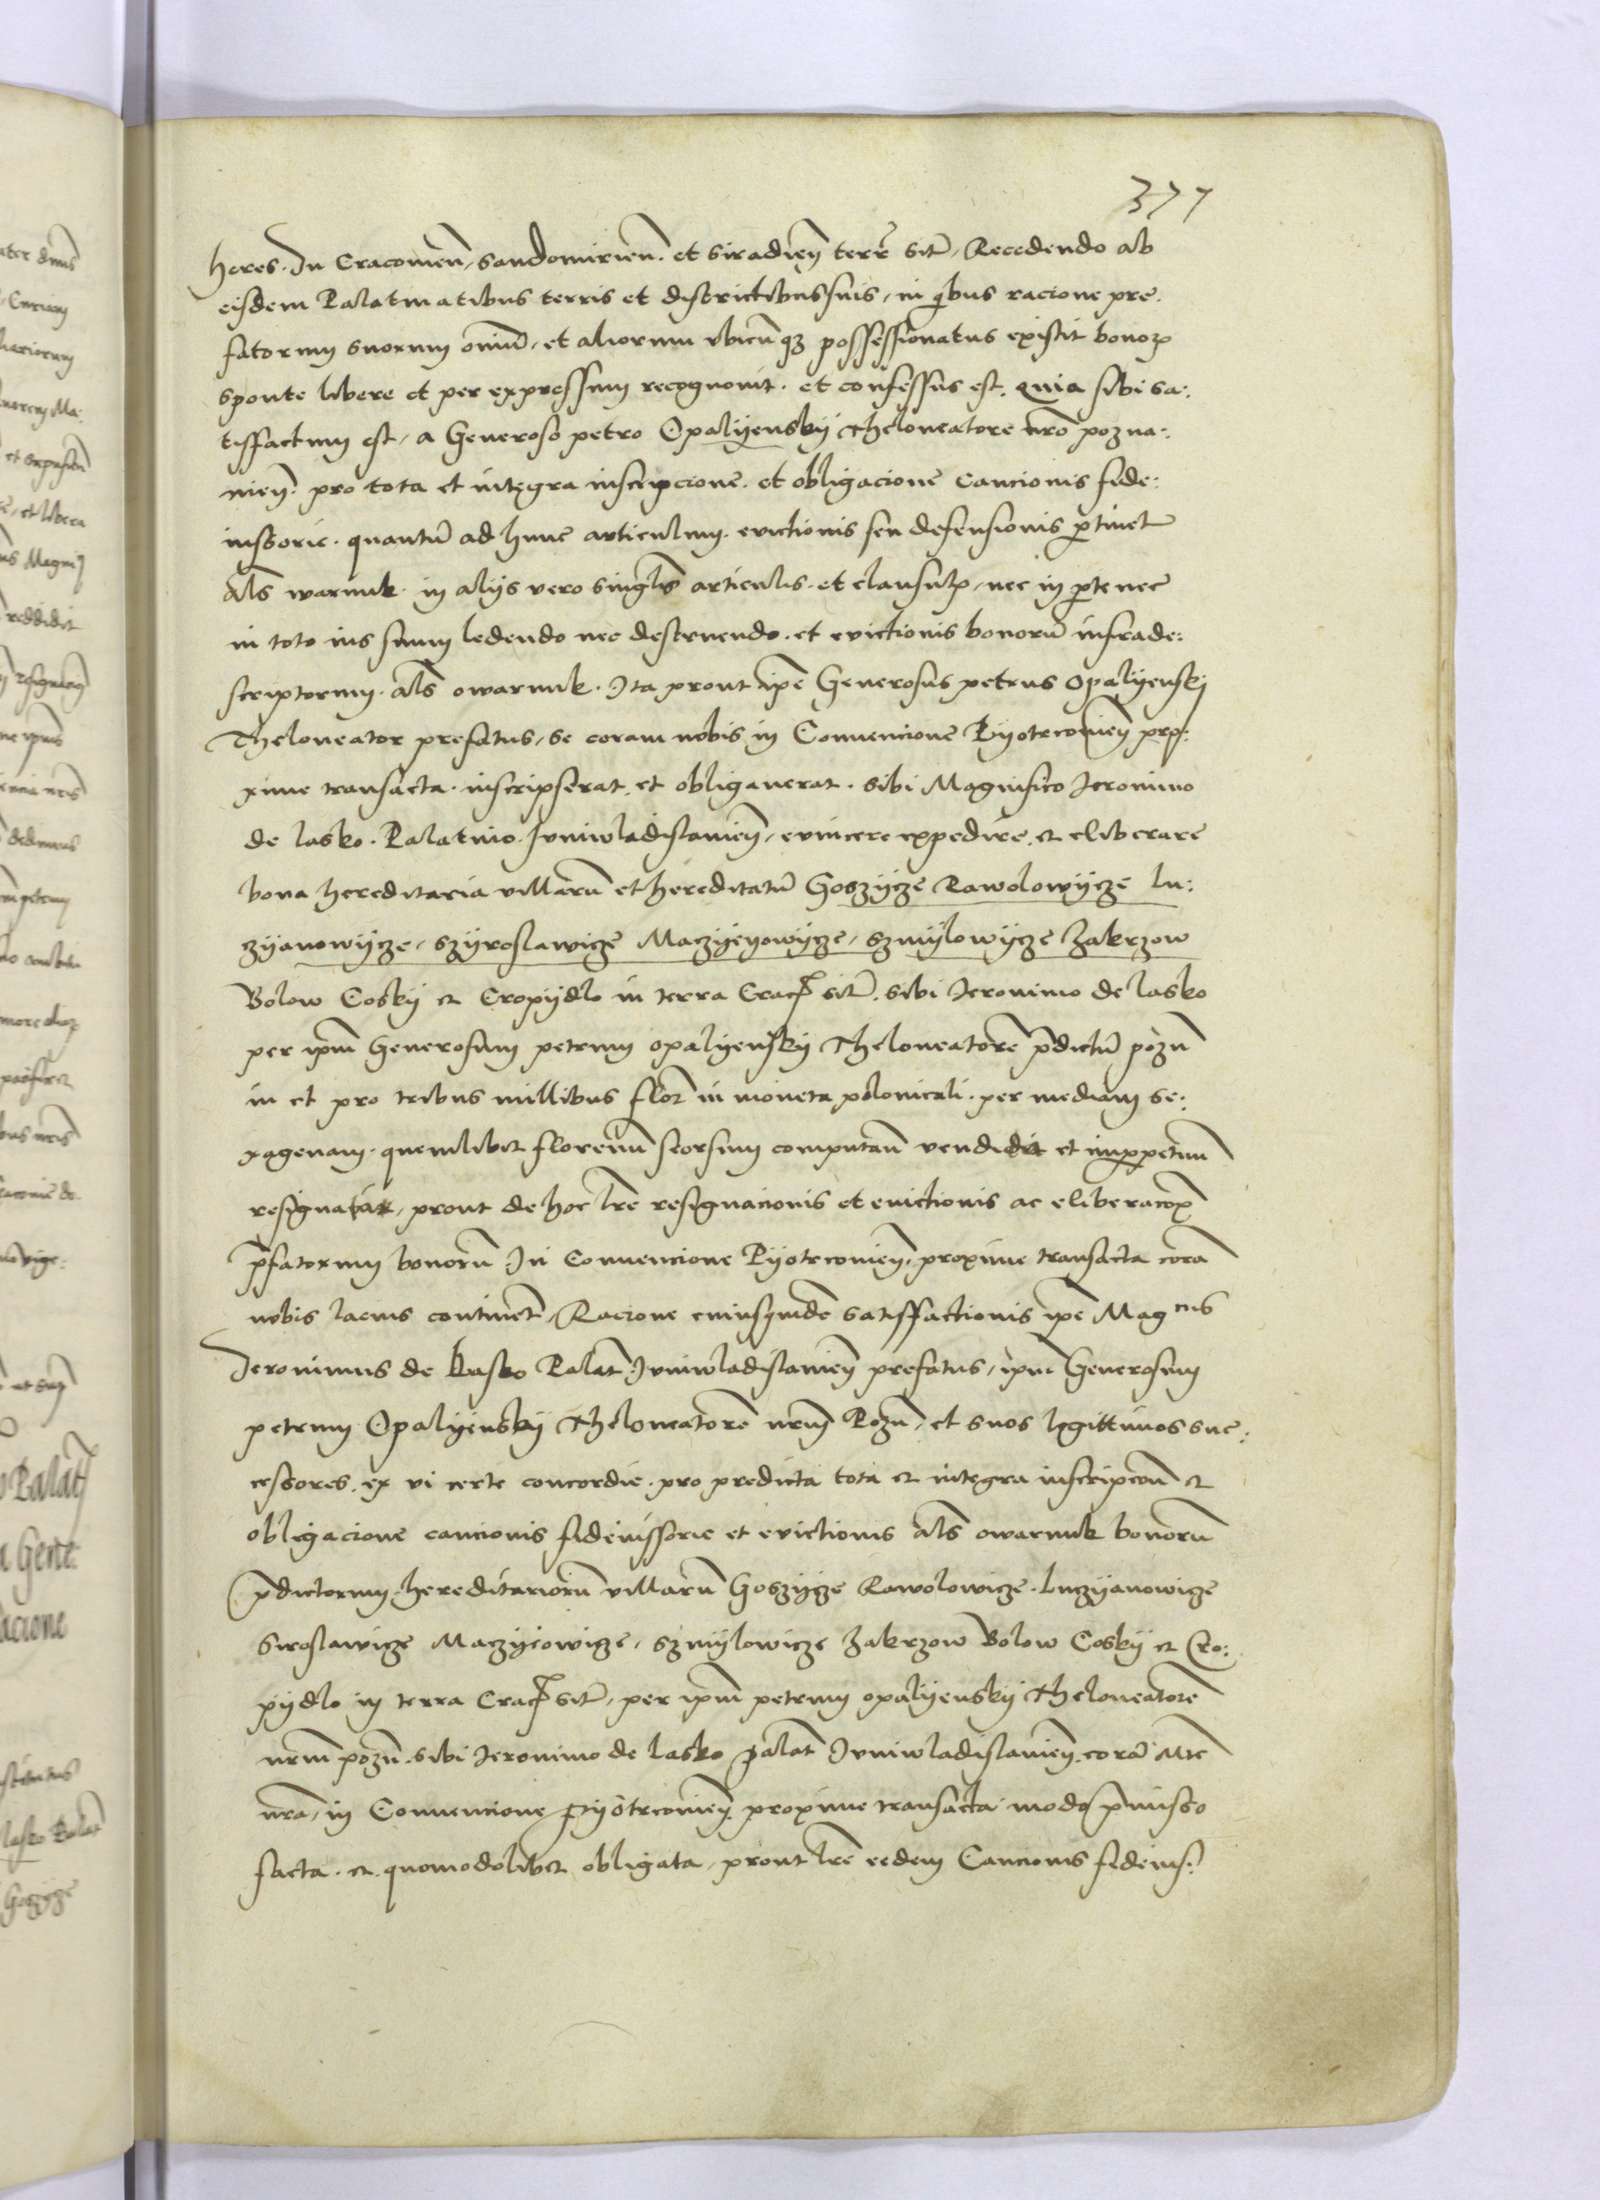 377
heres. In Cracovien̄, Sandomirien̄. et Siradien̄ terr̄ sit̄, Recedendo ab
eisdem Palatinatibus terris et districtibus suis, in qͥbus racione pre
fatorum suorum om̄iū, et aliorum vbicūqꝫ possessionatus existit bonoꝝ
sponte libere et per expressum recognovit. et confessus est. Quia sibi sa:
tisfactum est, a Generoso petro Opalyensky Theloneatore nr̄o pozna:
nien̄. pro tota et integra inscripcione. et obligacione Caucionis fide:
iussorie. quantū ad hunc articulum. evictionis seu defensionis ꝑtinet
al̄s warunk. in alijs vero singl̄is articulis. et clausulꝭ, nec in ꝑte nec
in toto ius suum ledendo nec destruendo. et evictionis bonorū infrade:
scriptorum. al̄s owarunk. Ita prout ip̄e Generosus petrus Opalyensky
Theloneator prefatus, se coram nobis in Convencione Pyotrconien̄ pro:
xime transacta. inscripserat et obligaverat. sibi Magnifico Jeronimo
de lasko. Palatino Juniwladislavien̄, evincere expedire. et eliberare
bona hereditaria villarū et hereditatū Goszycze Rawolowycze Lu:
czyanowycze, Szyroslawicze Maczyeyowycze, Szmylowycze Zakrzow
Bolow Cosky et Cropydlo in terra Crac̄ sit̄. sibi Jeronimo de lasko
per ip̄m Generosum petrum opalyensky Theloneatorē p̄dictū pozn̄
in et pro tribus millibus flor̄ in moneta polonicali. per mediam se:
xagenam. quemlibet florenū seorsum computan̄ vendidit et imꝑpetuū
resignavit, prout de hoc lr̄e resignacionis et evictionis ac eliberacōꝭ
p̄fatorum bonorū In Convencione Pyotrconien̄, proxime transacta corā
nobis lacius continet̄, Racione cuiusquidē satisfactionis ip̄e Magcus
Jeronimus de Lasko Palat̄ Juniwladislavien̄ prefatus, ip̄m Generosum
petrum Opalyensky Theloneatorē nr̄m Pozn̄, et suos legittimos suc:
cessores. ex vi certe concordie. pro predicta tota et integra inscripcōn̄ et
obligacione caucionis fideiussorie et evictionis al̄s owarunk bonorū
p̄dictorum hereditariorū villarū Goszycze Rawolowicze. Luczyanowicze
Siroslawicze Maczyeiowicze, Szmylowicze Zakrzow Bolow Cosky et Cro:
pydlo in terra Crac̄ sit̄, per ip̄m petrum opalyensky Theloneatorē
nr̄m pozn̄. sibi Jeronimo de lasko palat̄ Juniwladislavien̄. corā Mt̄e
nr̄a, in Convencione Pyotrconien̄. proxime transacta modo p̄misso
facta. et quomodolibet obligata, prout lr̄e eedem Caucionis fideius: